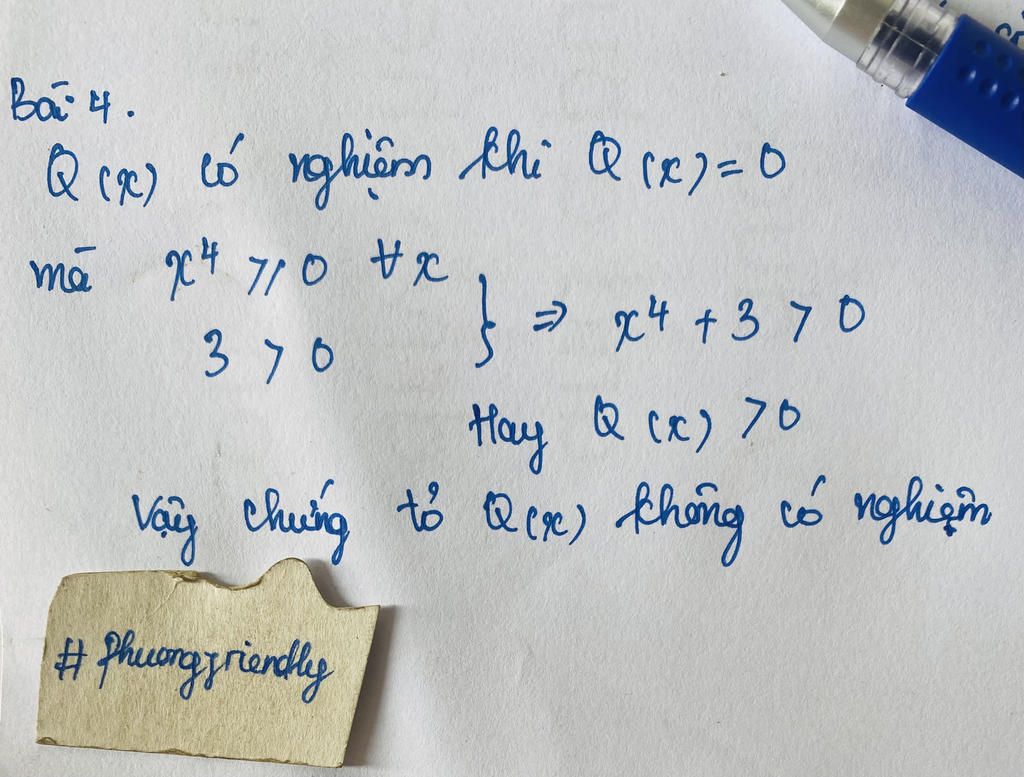 Bài 4.
Q(x) có nghiệm khi Q(x) = 0
mà x⁴ ⩾ 0 ∀x
3 > 0
} ⇒ x⁴ + 3 > 0
Hay Q(x) > 0
Vậy chứng tỏ Q(x) không có nghiệm
# phuongfriendly